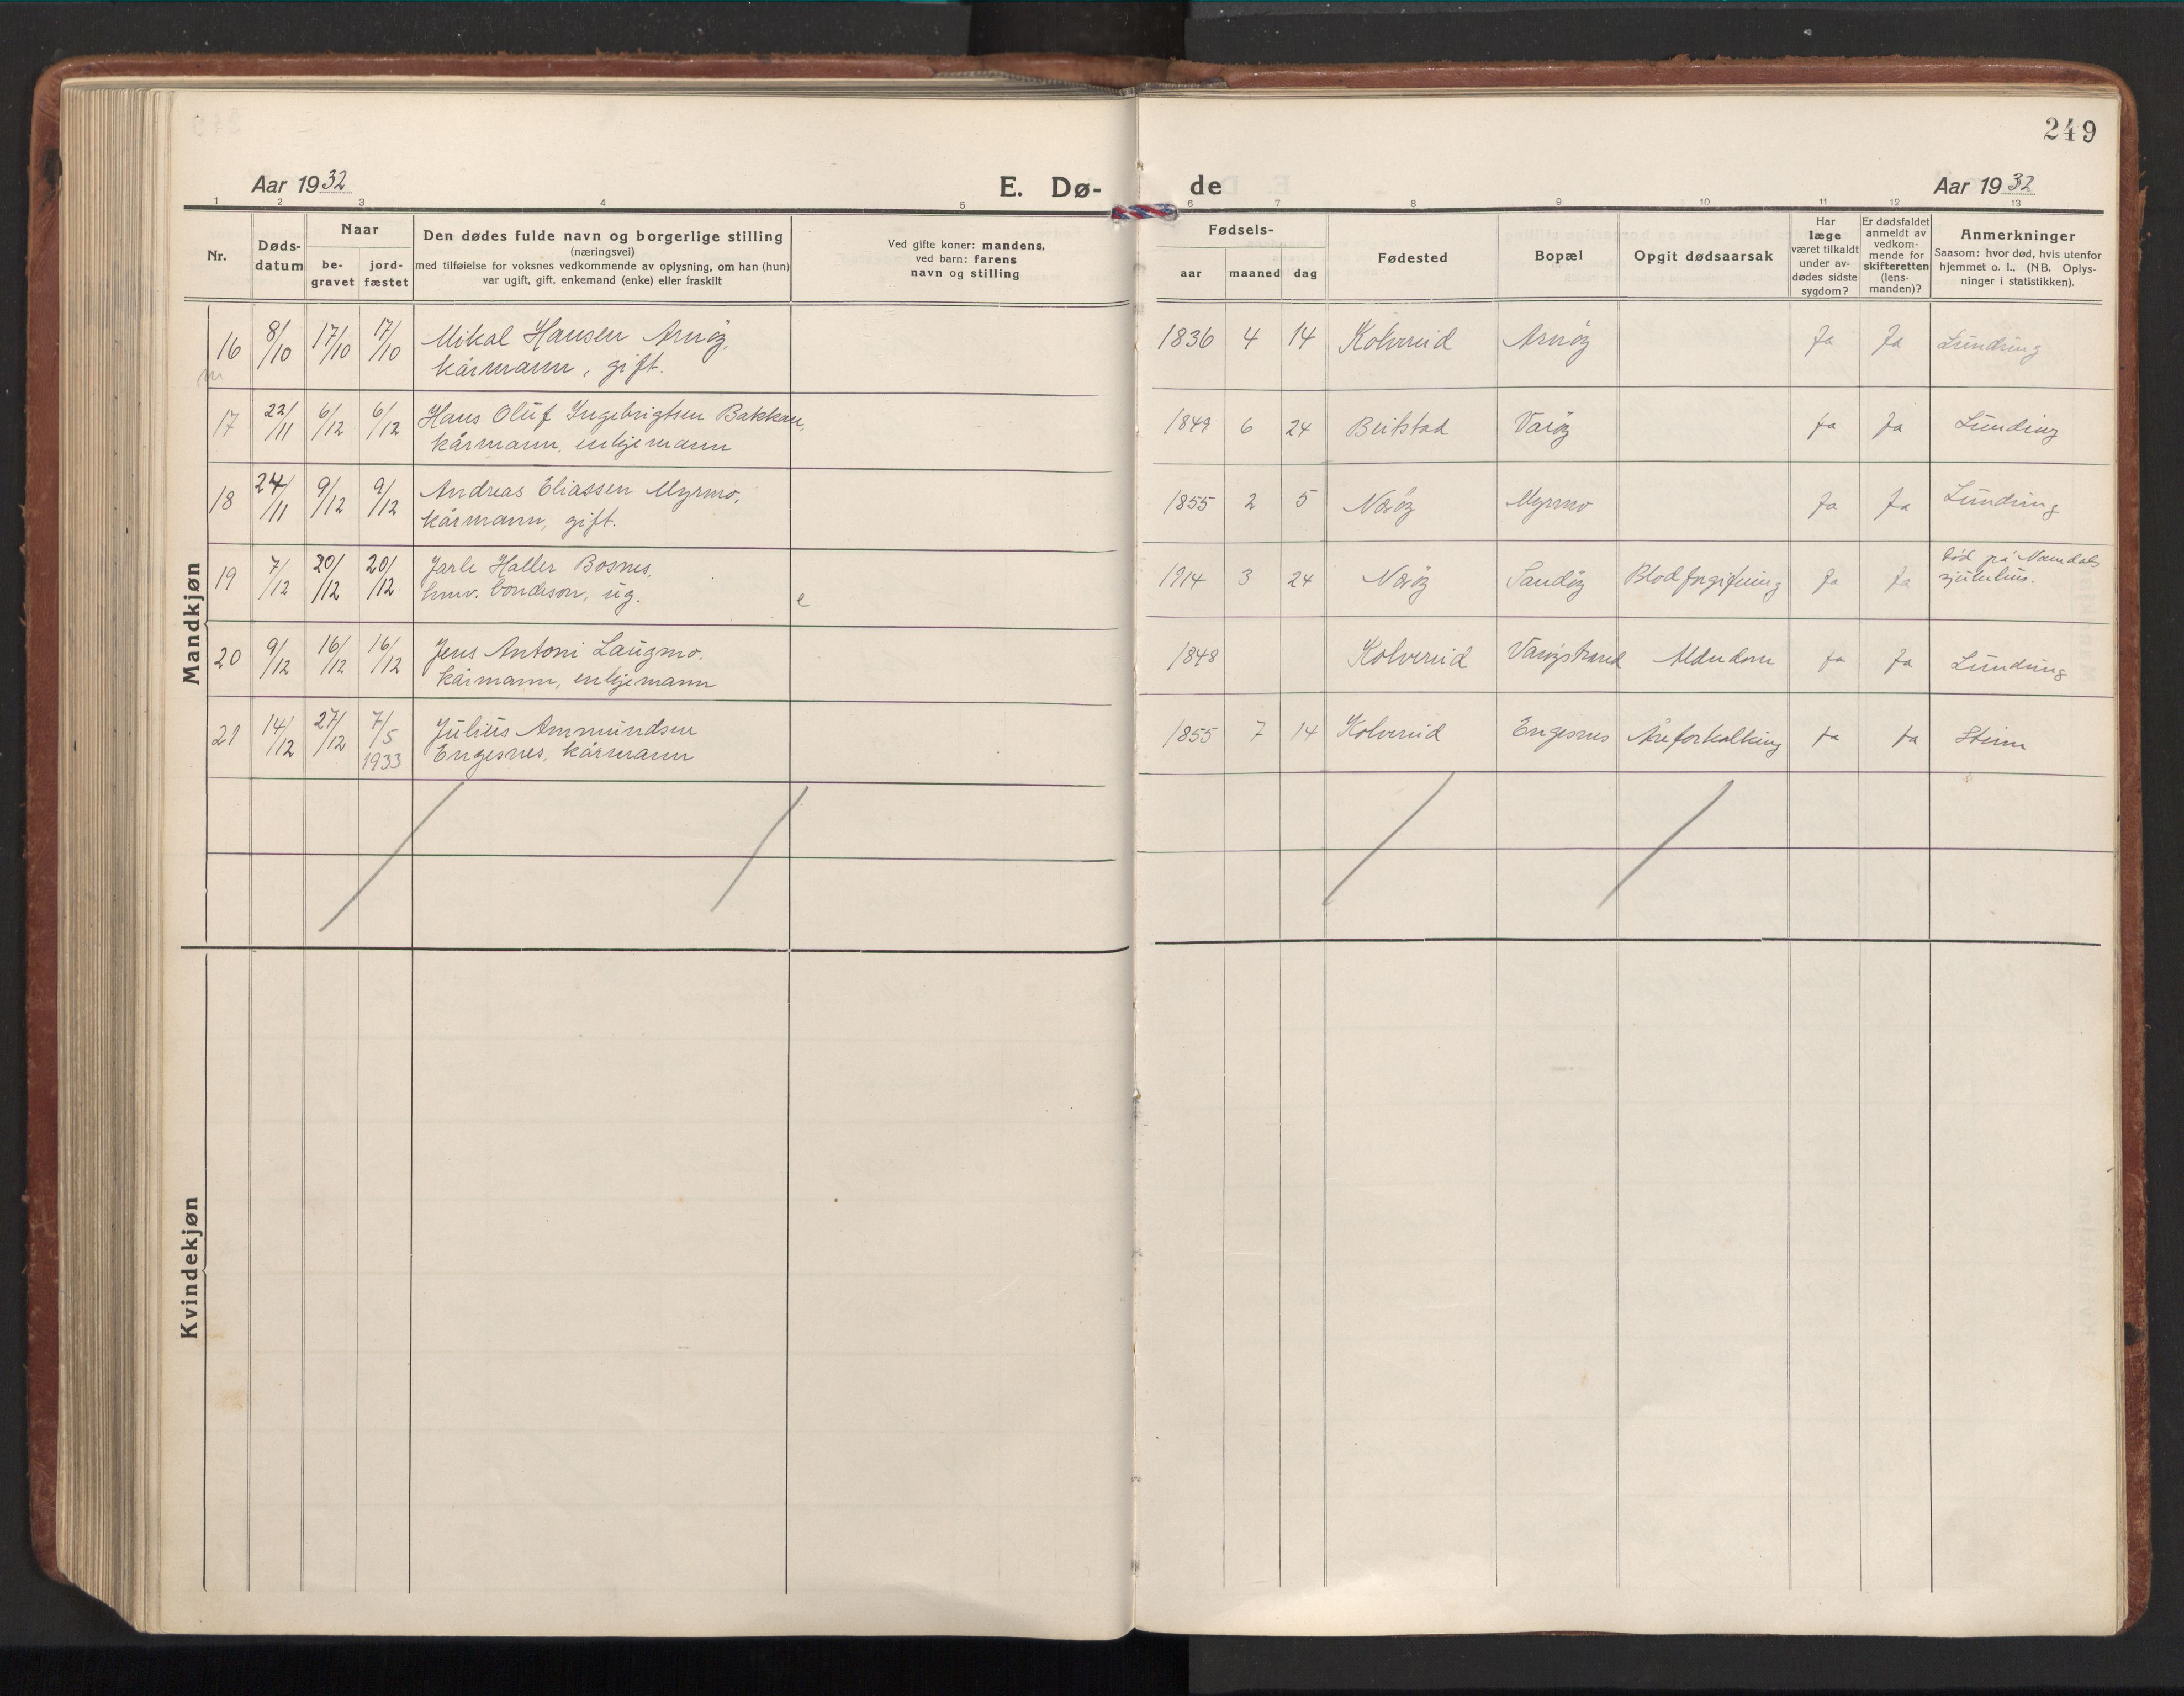 249
Aar 1932
E. Dø-
de
Aar 1932
1 2 3 4 5 6 7 8 9 10 11 12 13
Nr.
Døds-
datum
Naar
be-
gravet
jord-
fæstet
Den dødes fulde navn og borgerlige stilling
(næringsvei)
med tilføielse for voksnes vedkommende av oplysning, om han (hun)
var ugift, gift, enkemand (enke) eller fraskilt
Ved gifte koner: mandens,
ved barn: farens
navn og stilling
Fødsels-
aar maaned dag
Fødested
Bopæl
Opgit dødsaarsak
Har
læge
været tilkaldt
under av-
dødes sidste
sygdom?
Er dødsfaldet
anmeldt av
vedkom-
mende for
skifteretten
(lens-
manden)?
Anmerkninger
Saasom: hvor død, hvis utenfor
hjemmet o. l., (NB. Oplys-
ninger i statistikken).
Mandkjøn
16 8/10 17/10 17/10 Mikal Hansen Arnöy, 1836 4 14 Kolvereid Arnöy Ja Ja Lundring
kårmann, gift.
m
17 22/11 6/12 6/12 Hans Oluf Ingebrigtsen Bakken, 1849 6 24 Beitstad Varöy Ja Ja Lunding
kårmann, enkjemann
18 24/11 9/12 9/12 Andreas Eliassen Myrmo, 1855 2 5 Næröy Myrmo Ja Ja Lundring
kårmann, gift.
19 7/12 20/12 20/12 Jarle Haller Bosnes, 1914 3 24 Næröy Sandöy Blodforgiftning Ja Ja død på Namdals
bondeson, ug. e sjukehus.
20 9/12 16/12 16/12 Jens Antoni Laugmo, 1848 Kolvereid Varöystrand Alderdom Ja Ja Lundring
kårmann, enkjemann
21 14/12 27/12 7/5 Julius Ammundsen 1855 7 14 Kolvereid Engesnes Åreforkalking Ja Ja Steinn
1933 Engesnes, kårmann
Kvindekjøn